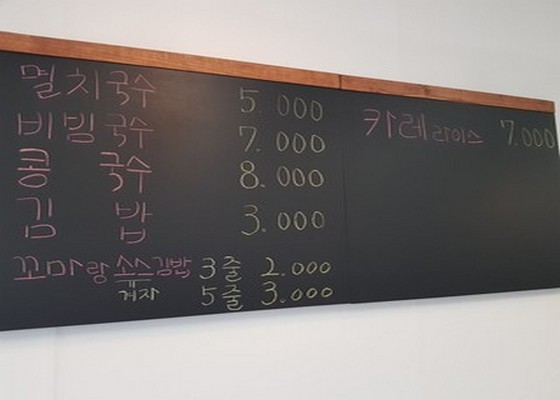 멸치국수 5.000
비빔국수 7.000
콩 국수 8.000
김 밥 3.000
꼬마랑 소스김밥 3줄 2.000
겨자 5줄 3.000
카레라이스 7.000